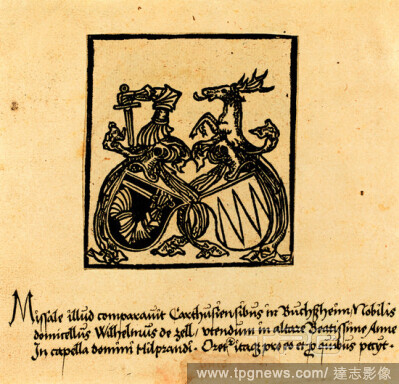 Missale illud comparavit Carthusiensibus in Buchßheim Nobilis
domicellus Wilhelmus de zell / vtendum in altare Beatissime Anne
In capella domini Hilprandi. Oret itaq; pro eo et pro quibus petyt.
www.tpgnews.com / 達志影像